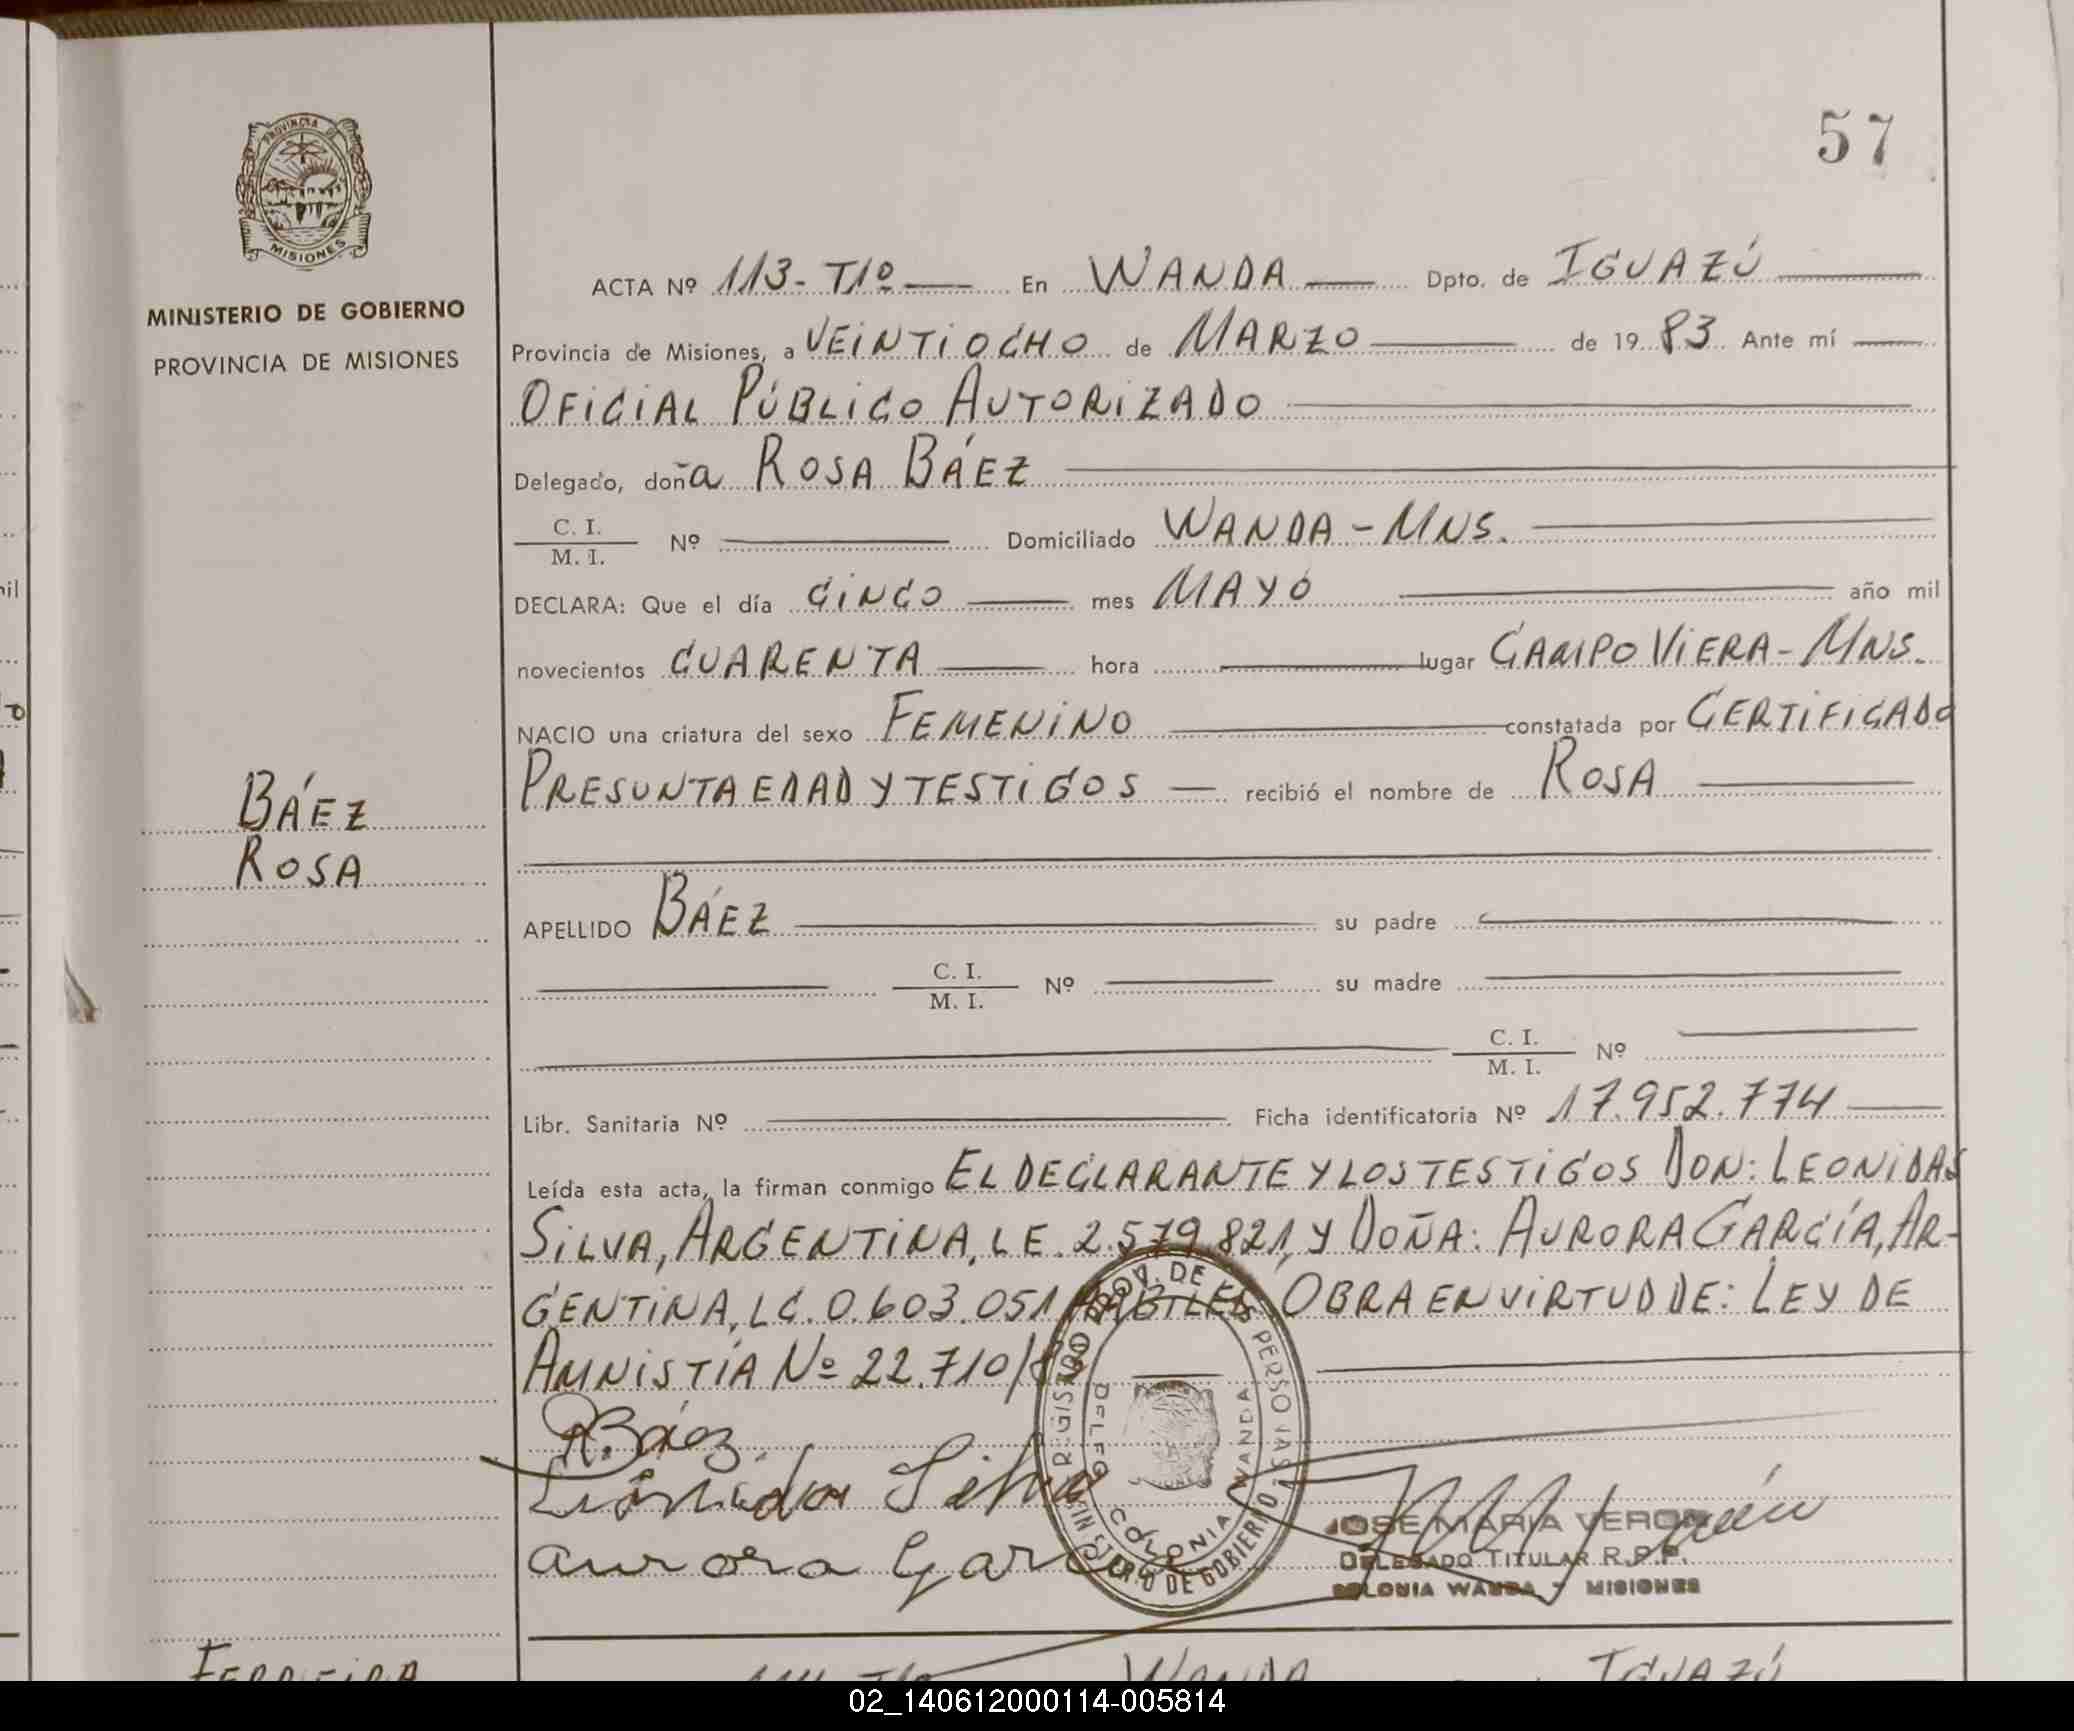 57
PROVINCIA DE
MISIONES
MINISTERIO DE GOBIERNO
PROVINCIA DE MISIONES
ACTA Nº 113-T1º En WANDA Dpto. de IGUAZÚ
Provincia de Misiones, a VEINTIOCHO de MARZO de 1983 Ante mí
OFICIAL PÚBLICO AUTORIZADO
Delegado, doña ROSA BÁEZ
C. I.
M. I. Nº Domiciliado WANDA-MNS.
DECLARA: Que el día CINCO mes MAYO año mil
novecientos CUARENTA hora lugar CAMPO VIERA-MNS.
NACIO una criatura del sexo FEMENINO constatada por CERTIFICADO
PRESUNTA EDAD Y TESTIGOS recibió el nombre de ROSA
BÁEZ
ROSA
APELLIDO BÁEZ su padre
C. I.
M. I. Nº su madre
C. I.
M. I. Nº
Libr. Sanitaria Nº Ficha identificatoria Nº 17.952.774
Leída esta acta, la firman conmigo EL DECLARANTE Y LOS TESTIGOS DON: LEONIDAS
SILVA, ARGENTINA, LE. 2.579.821, Y DOÑA: AURORA GARCÍA, AR-
GENTINA, LC. 0.603.051 HÁBILES OBRA EN VIRTUD DE: LEY DE
AMNISTÍA Nº 22.710/
R. Báez
Leonidas Silva
aurora Garcia
REGISTRO PROV. DE LAS PERSONAS
MINISTERIO DE GOBIERNO
DELEG. COLONIA WANDA
JOSE MARIA VERON
DELEGADO TITULAR R.P.P.
COLONIA WANDA - MISIONES
FERREIRA WANDA IGUAZÚ
02_140612000114-005814